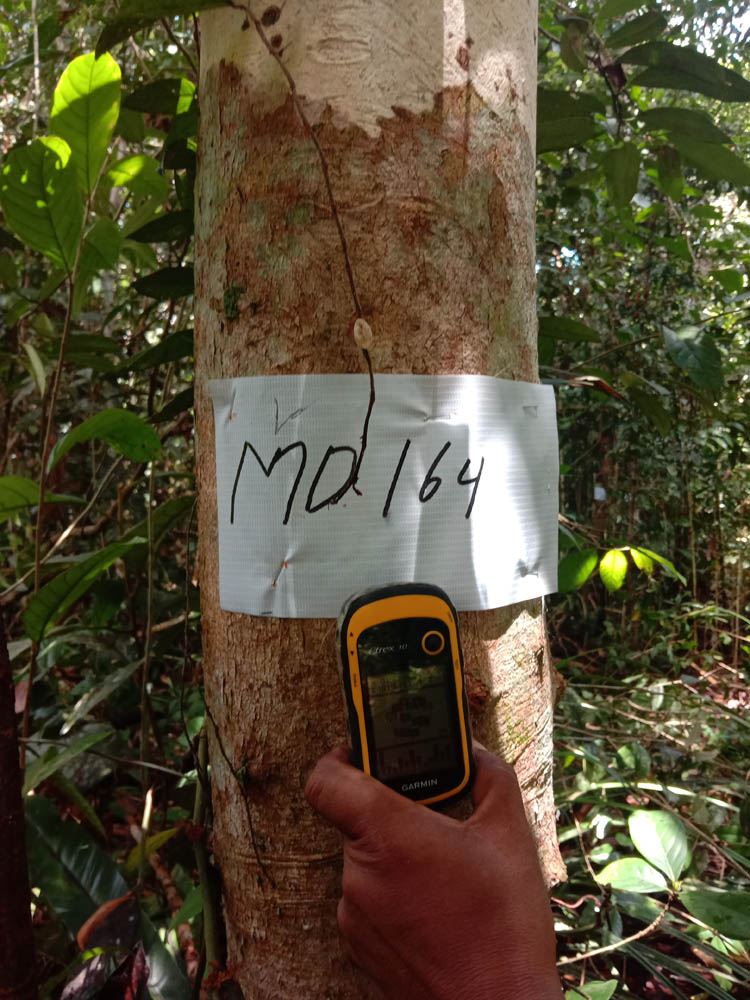 MD. 164
eTrex 10
GARMIN